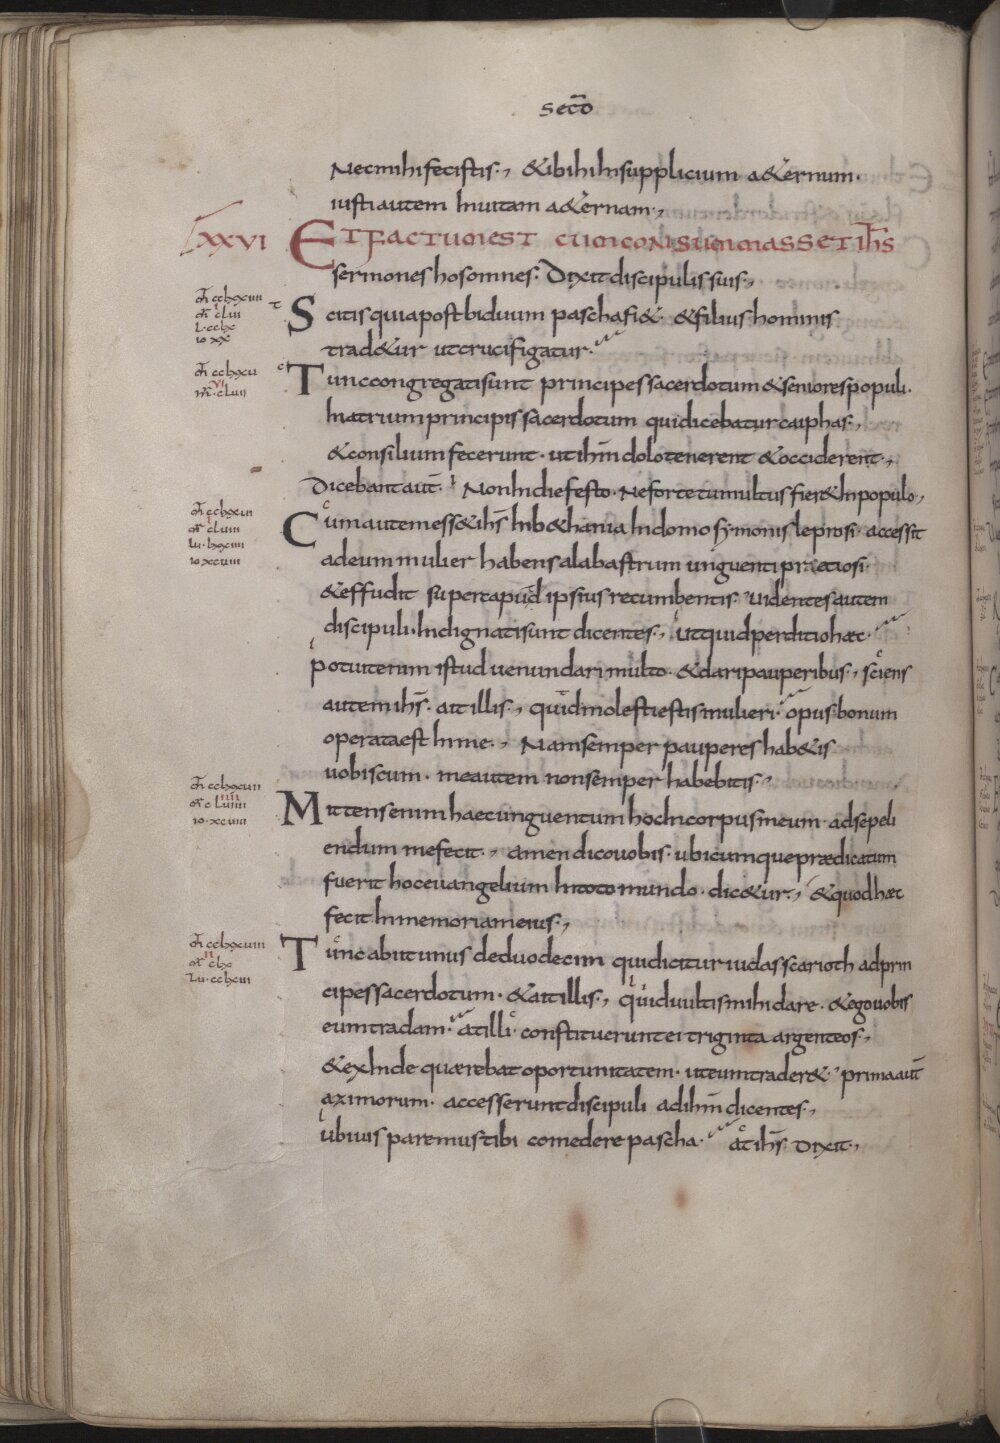 sec̄o
Nec mihi fecistis·, & ibih̄ in supplicium a&ernum·
iusti autem in uitam a&ernam·,
LXXVI ET FACTUM EST CUM CONSUMMASSET IH̄S
sermones hos omnes· Dixit discipulis suis·,
Scitis quia post biduum pascha fi& & filius hominis
trad&ur ut crucifigatur·
Tunc congregati sunt principes sacerdotum & seniores populi·
In atrium principis sacerdotum qui dicebatur caiphas·,
& consilium fecerunt· ut ihm̄ dolo tenerent & occiderent·,
Dicebant aut̄· Non in die festo· Ne forte tumultus fier& in populo·,
Cum autem ess& ihs̄ in b&hania in domo symonis leprosi· accessit
ad eum mulier habens alabastrum unguenti praetiosi·
& effudit super caput ipsius recumbentis· uidentes autem
discipuli· Indignati sunt dicentes·, Ut quid perditio haec·
potuit enim istud uenundari multo· & dari pauperibus·, sciens
autem ihs̄· ait illis·, quid molesti estis mulieri· opus bonum
operata est in me·, Nam semper pauperes hab&is
uobiscum· me autem non semper habebitis·,
Mittens enim haec unguentum hoc in corpus meum· ad sepeli
endum me fecit·, amen dico uobis· ubicumque praedicatum
fuerit hoc euangelium in toto mundo· dic&ur·, & quod haec
fecit in memoriam eius·,
Tunc abiit unus de duodecim qui dicitur iudas scarioth ad prin
cipes sacerdotum· & ait illis·, quid uultis mihi dare· & ego uobis
eum tradam· at illi· constituerunt ei triginta argenteos·,
& exinde quaerebat oportunitatem· ut eum trader&· prima aut̄
azimorum· accesserunt discipuli ad ihm̄ dicentes·,
ubi uis paremus tibi comedere pascha· at ihs̄ dixit·,